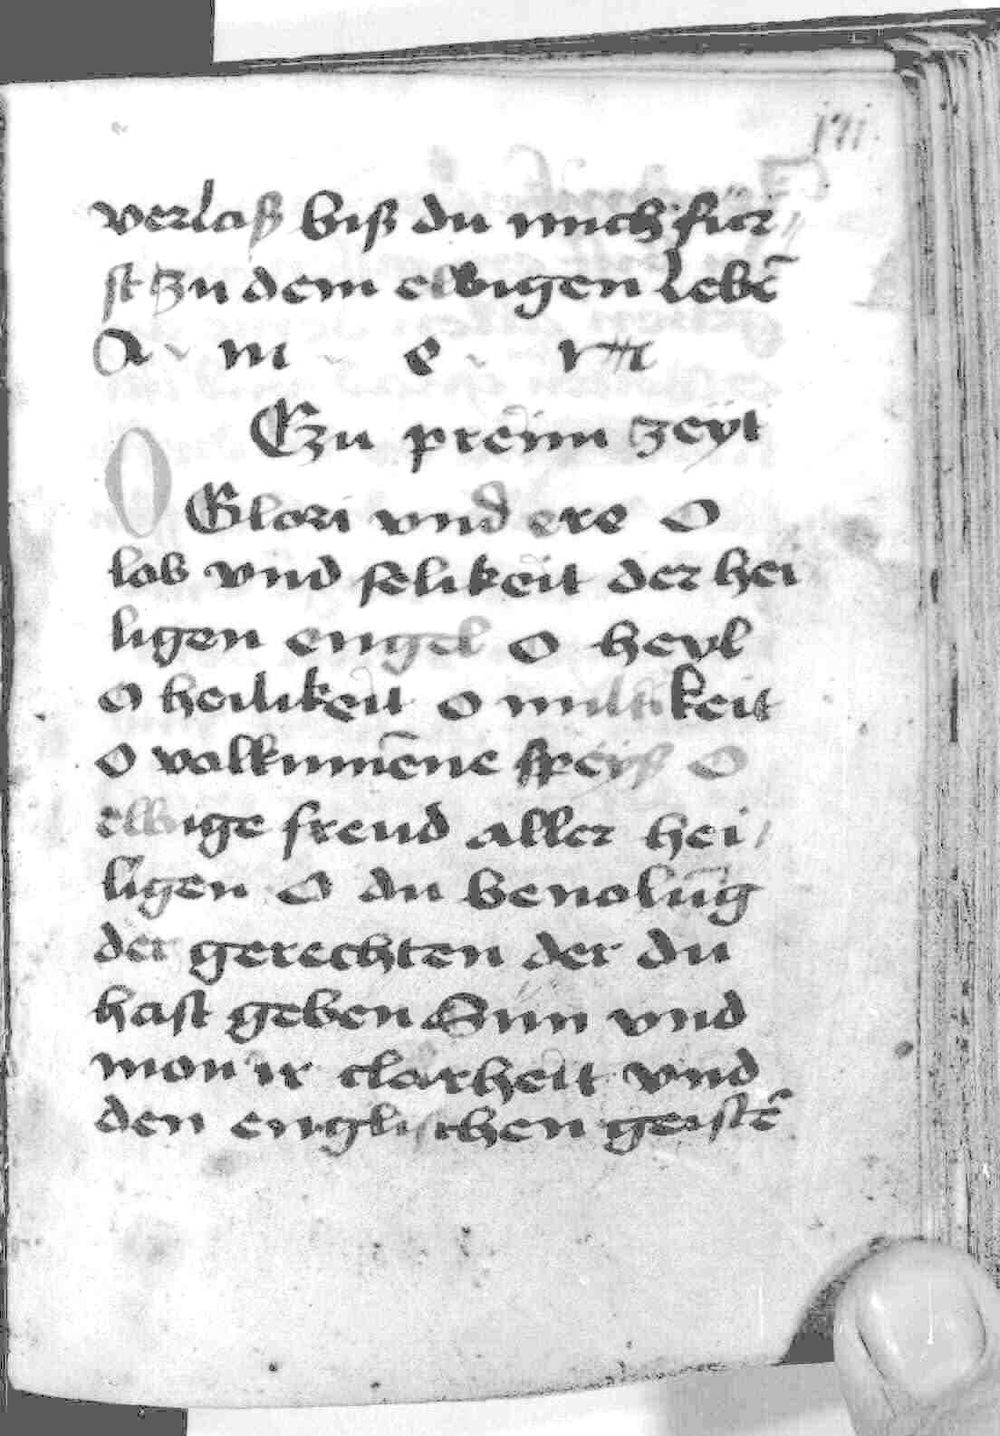 verlaß biß du mich fur
st zu dem ewigen lebē
A m e n
Czu preim zeyt
O Glori vnd ere o
lob vnd selikeit der hei
ligen engel o heyl
o heilikeit o miltikeit
o volkumēne speyß o
ewige freud aller hei
ligen O du benolūg
der gerechten der du
hast geben Sun vnd
mon ir clarheit vnd
den englischen geistē